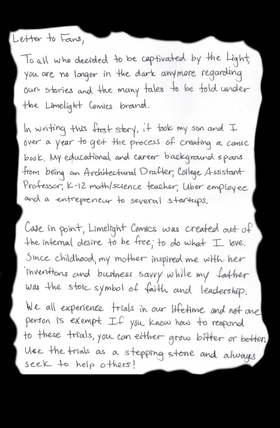 Letter to Fans,
To all who decided to be captivated by the Light,
you are no longer in the dark anymore regarding
our stories and the many tales to be told under
the Limelight Comics brand.
In writing this first story, it took my son and I
over a year to get the process of creating a comic
book. My educational and career background spans
from being an Architectural Drafter, College Assistant
Professor, K-12 math/science teacher, Uber employee
and a entrepreneur to several startups.
Case in point, Limelight Comics was created out of
the internal desire to be free; to do what I love.
Since childhood, my mother inspired me with her
inventions and business savvy while my father
was the stoic symbol of faith and leadership.
We all experience trials in our lifetime and not one
person is exempt. If you know how to respond
to these trials, you can either grow bitter or better.
Use the trials as a stepping stone and always
seek to help others!